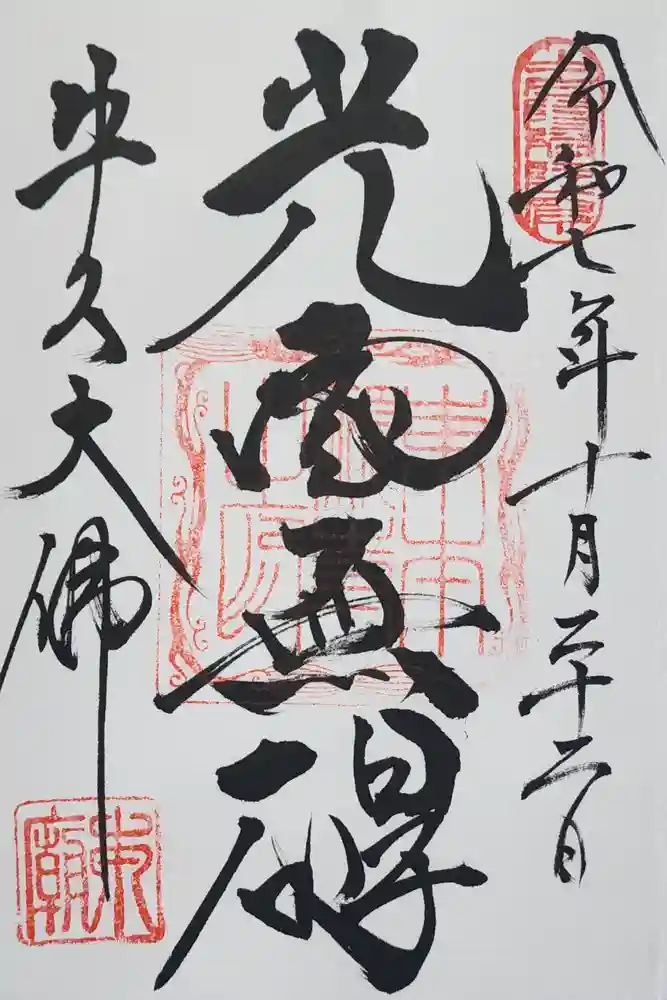 令和七年十月二十二日
光雲無碍
牛久大佛